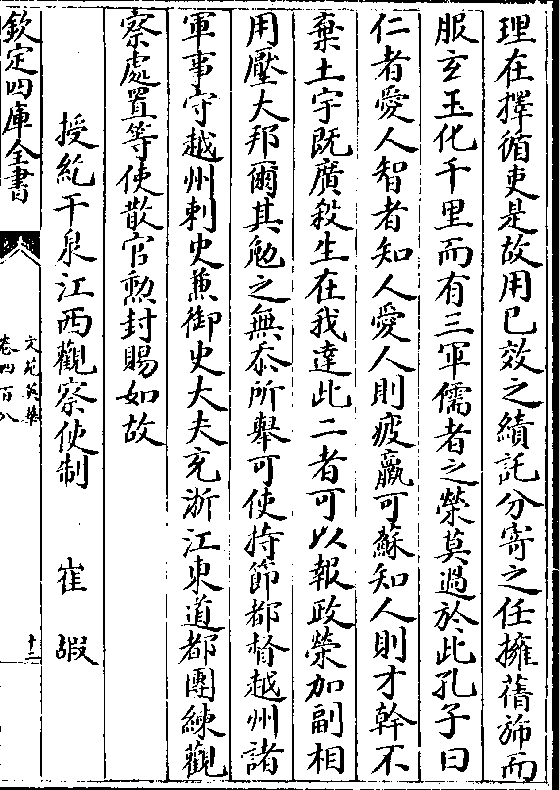 理在擇循吏是故用已效之績託分寄之任擁蒨斾而
服玄玉化千里而有三軍儒者之榮莫過於此孔子曰
仁者愛人智者知人愛人則疲羸可蘇知人則才幹不
棄土宇既廣殺生在我達此二者可以報政榮加副相
用壓大邦爾其勉之無忝所舉可使持節都督越州諸
軍事守越州刺史兼御史大夫充浙江東道都團練觀
察處置等使散官勲封賜如故
授紇干泉江西觀察使制 崔嘏
欽定四庫全書
文苑英華
卷四百八
十三